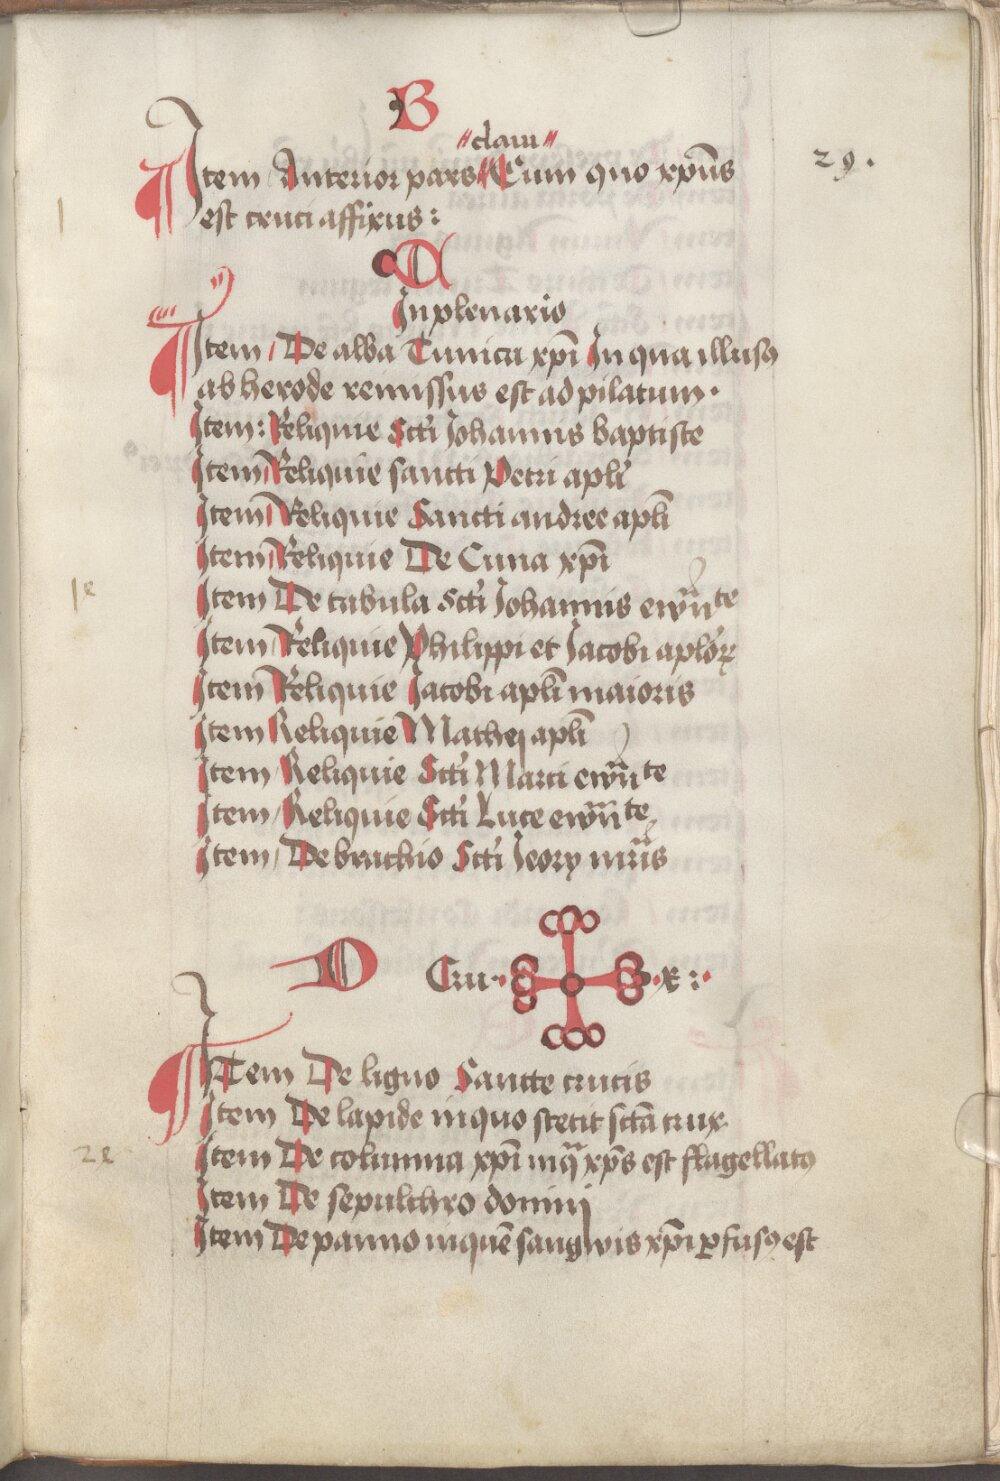 B
"claui"
Item Anterior pars "Cum quo xp̄us
29.
est cruci affixus:
In plenario
Item De alba Tunica xpī In qua illusꝰ
ab herode remissus est ad pilatum.
Item: Reliquie Scti Johannis baptiste
Item Reliquie sancti Petri apli
Item Reliquie Sancti andree apli
Item Reliquie De Cuna xpī
Item De tabula Scti Johannis ewūte
Item Reliquie Philippi et Jacobi aploꝝ
Item Reliquie Jacobi apli maioris
Item Reliquie Mathej apli
Item Reliquie Scti Marci ewūte
Item Reliquie Scti Luce ewūte
Item De brachio Scti Jeorij mris
D Cru x:
ITem De ligno Sancte crucis
Item De lapide in quo stetit sctā crux
Item De columna xpī in qͣ xp̄s est flagellatꝰ
Item De sepulchro dominj
Item De panno in quē sangwis xpī ꝑfusꝰ est